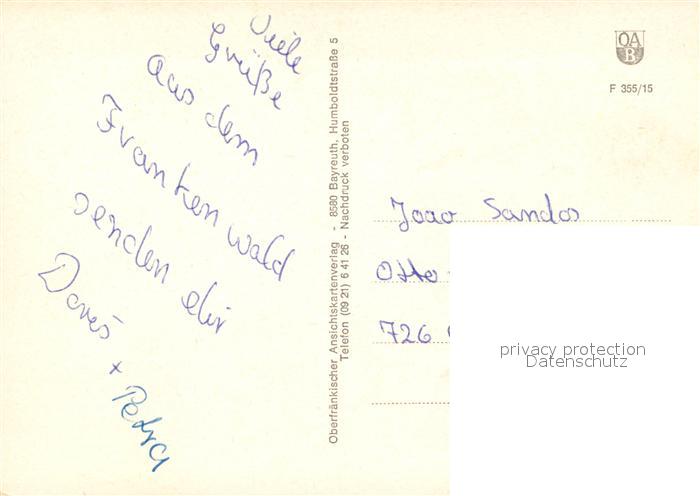 Viele
Grüße
aus dem
Frankenwald
senden dir
Doris + Petra
Oberfränkischer Ansichtskartenverlag - 8580 Bayreuth, Humboldtstraße 5
Telefon (09 21) 6 41 26 - Nachdruck verboten
OA
B
F 355/15
Joao Sandos
Otto
726
privacy protection
Datenschutz